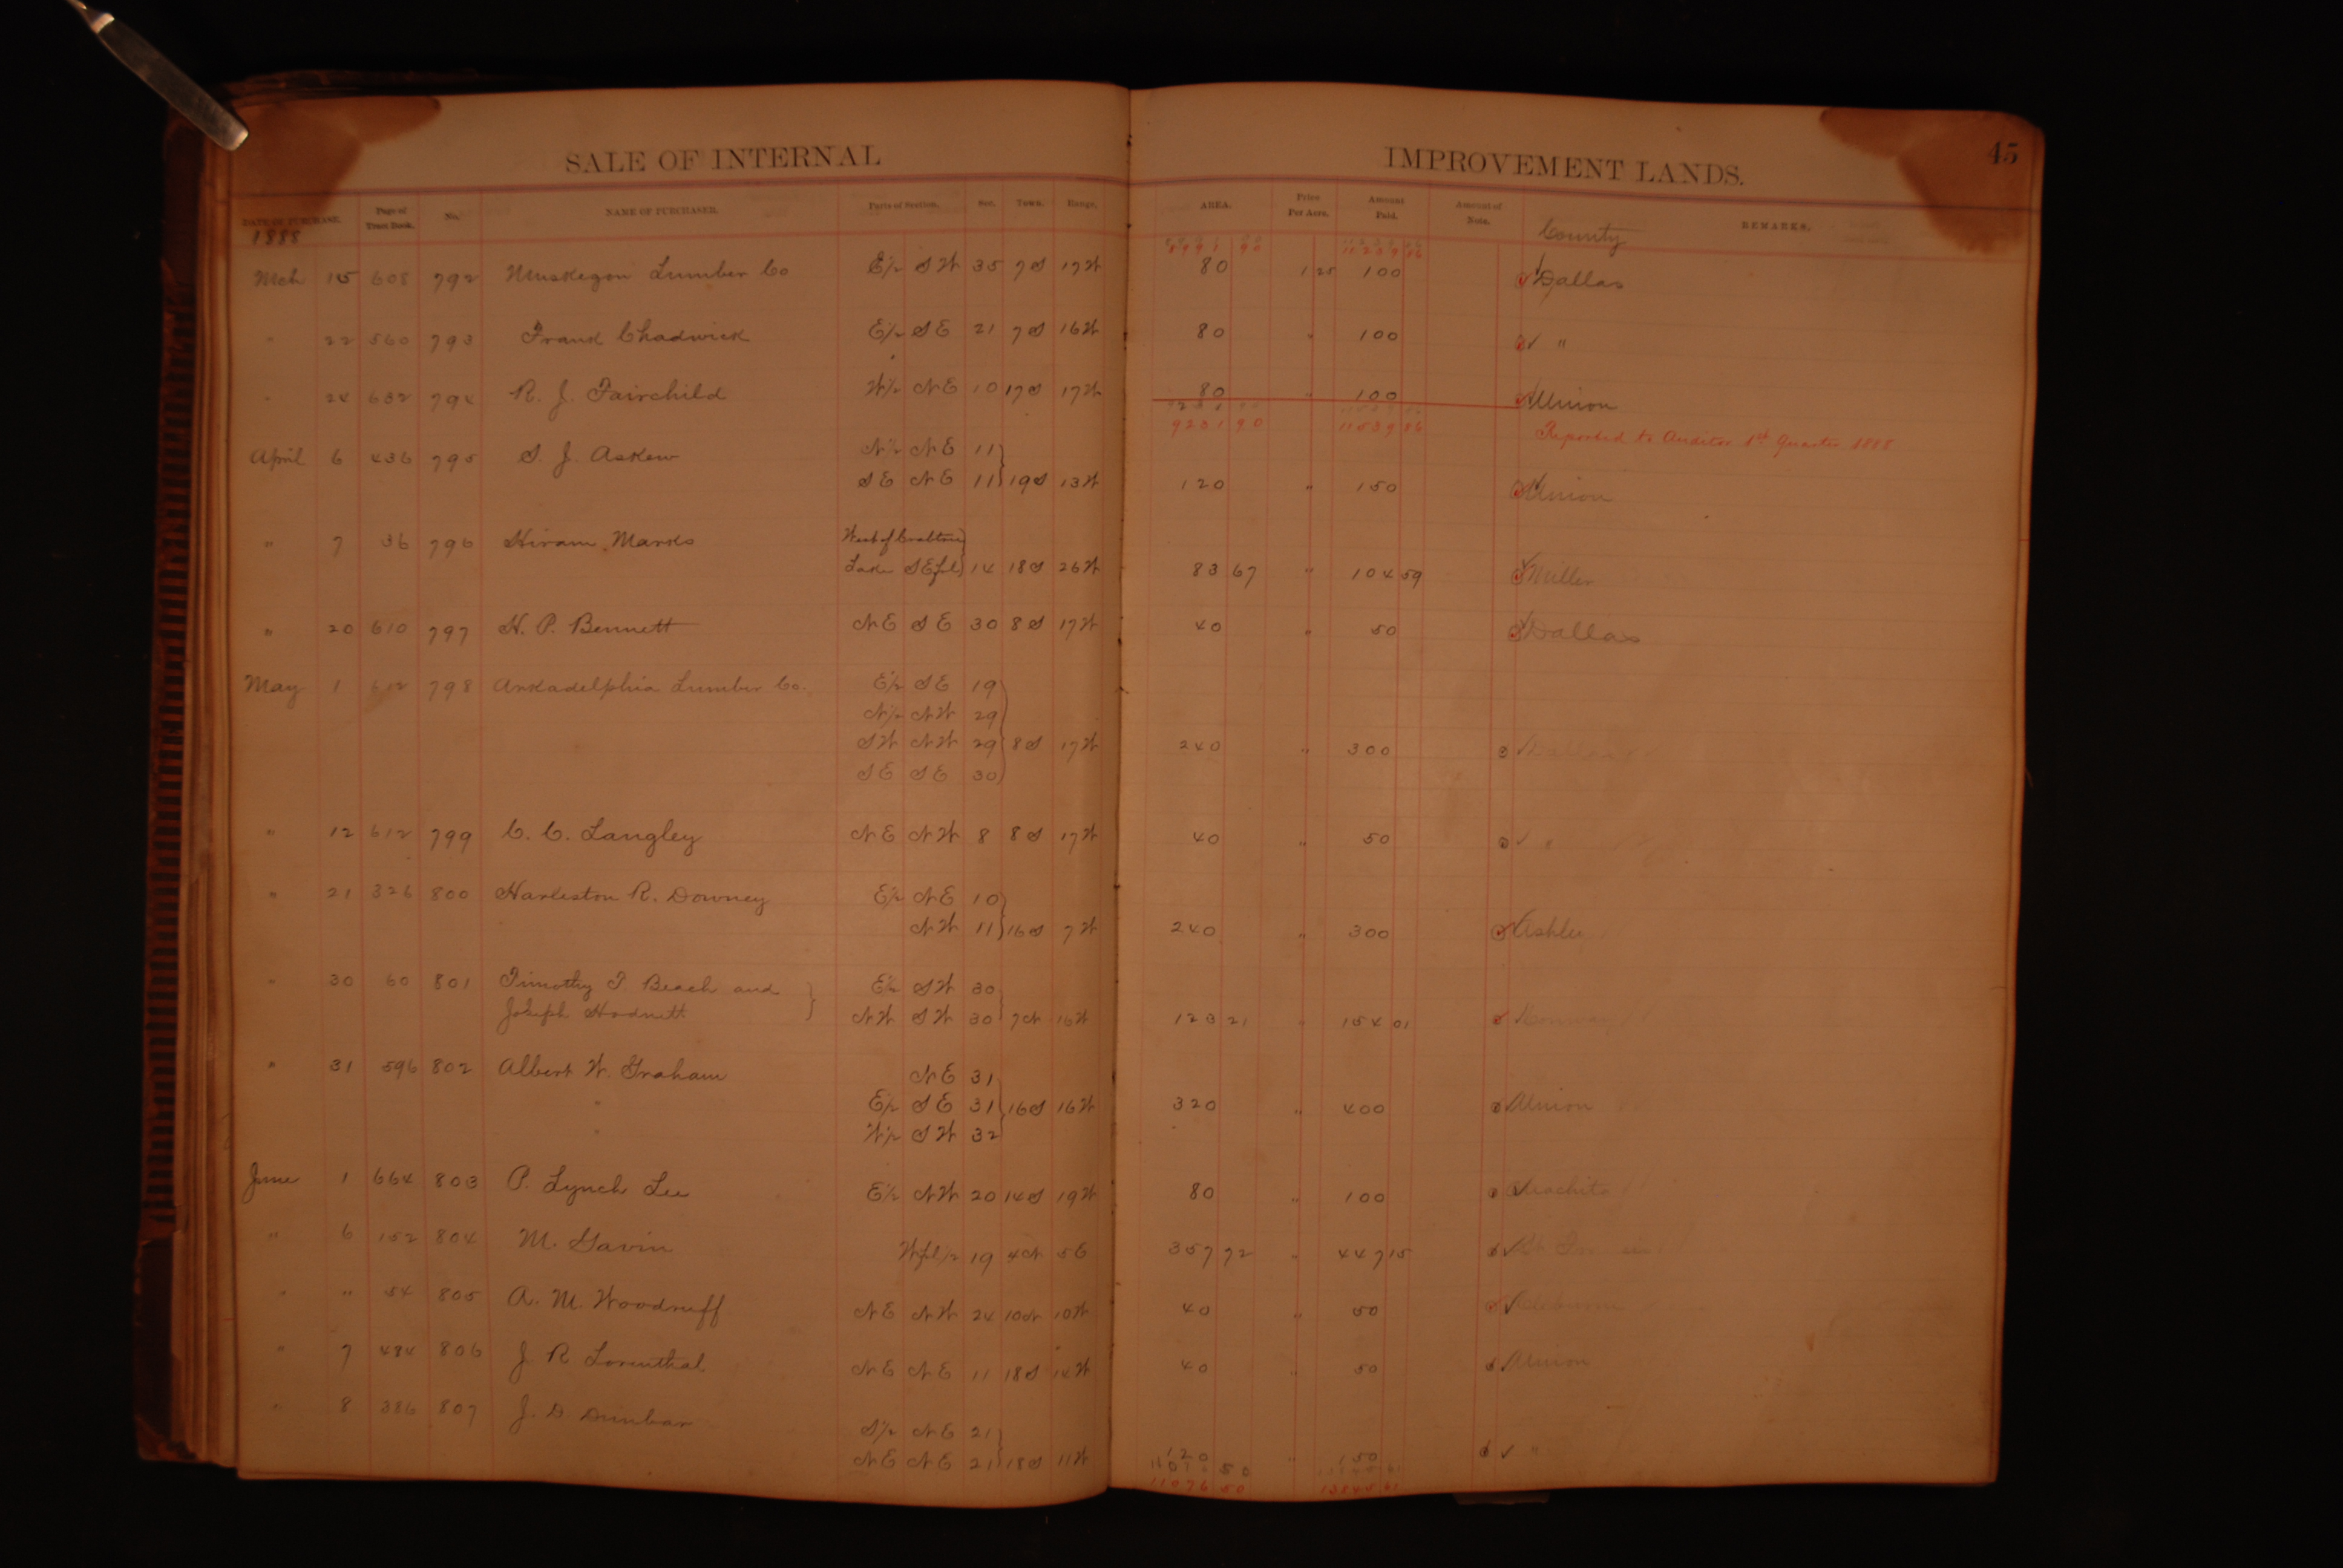 SALE OF INTERNAL IMPROVEMENT LANDS. 45
DATE OF PURCHASE. Page of Tract Book. No. NAME OF PURCHASER. Parts of Section. Sec. Town. Range. AREA. Price Per Acre. Amount Paid. Amount of Note. County REMARKS.
1888
8991 90 11239 86
Mch 15 608 792 Muskegon Lumber Co E½ SW 35 7S 17W 80 1 25 100 Dallas
" 22 560 793 Frank Chadwick E½ SE 21 7S 16W 80 " 100 "
" 24 632 794 R. J. Fairchild W½ NE 10 17S 17W 80 " 100 Union
9231 90 11539 86 Reported to Auditor 1st Quarter 1888
April 6 436 795 S. J. Askew N½ NE 11
SE NE 11 19S 13W 120 " 150 Union
" 7 36 796 Hiram Marks West of
Lake SEfl 14 18S 26W 83 67 " 104 59 Miller
" 20 610 797 H. P. Bennett NE SE 30 8S 17W 40 " 50 Dallas
May 1 612 798 Arkadelphia Lumber Co. E½ SE 19
N½ NW 29
SW NW 29 8S 17W 240 " 300 Dallas
SE SE 30
" 12 612 799 C. C. Langley NE NW 8 8S 17W 40 " 50 "
" 21 326 800 Harleston R. Downey E½ NE 10
NW 11 16S 7W 240 " 300 Ashley
" 30 60 801 Timothy P. Beach and E½ SW 30
Joseph Hodnett NW SW 30 7N 16W 123 21 " 154 01 Conway
" 31 596 802 Albert W. Graham NE 31
" E½ SE 31 16S 16W 320 " 400 Union
" W½ SW 32
June 1 664 803 P. Lynch Lee E½ NW 20 14S 19W 80 " 100 Ouachita
" 6 152 804 M. Gavin Wfl½ 19 4N 5E 357 72 " 447 15 St Francis
" " 54 805 A. M. Woodruff NE NW 24 10N 10W 40 " 50 Cleburne
" 7 484 806 J R Lowenthal NE NE 11 18S 14W 40 " 50 Union
" 8 386 807 J. D Dunbar S½ NE 21
NE NE 21 18S 11W 120 " 150 "
11076 50 13845 61